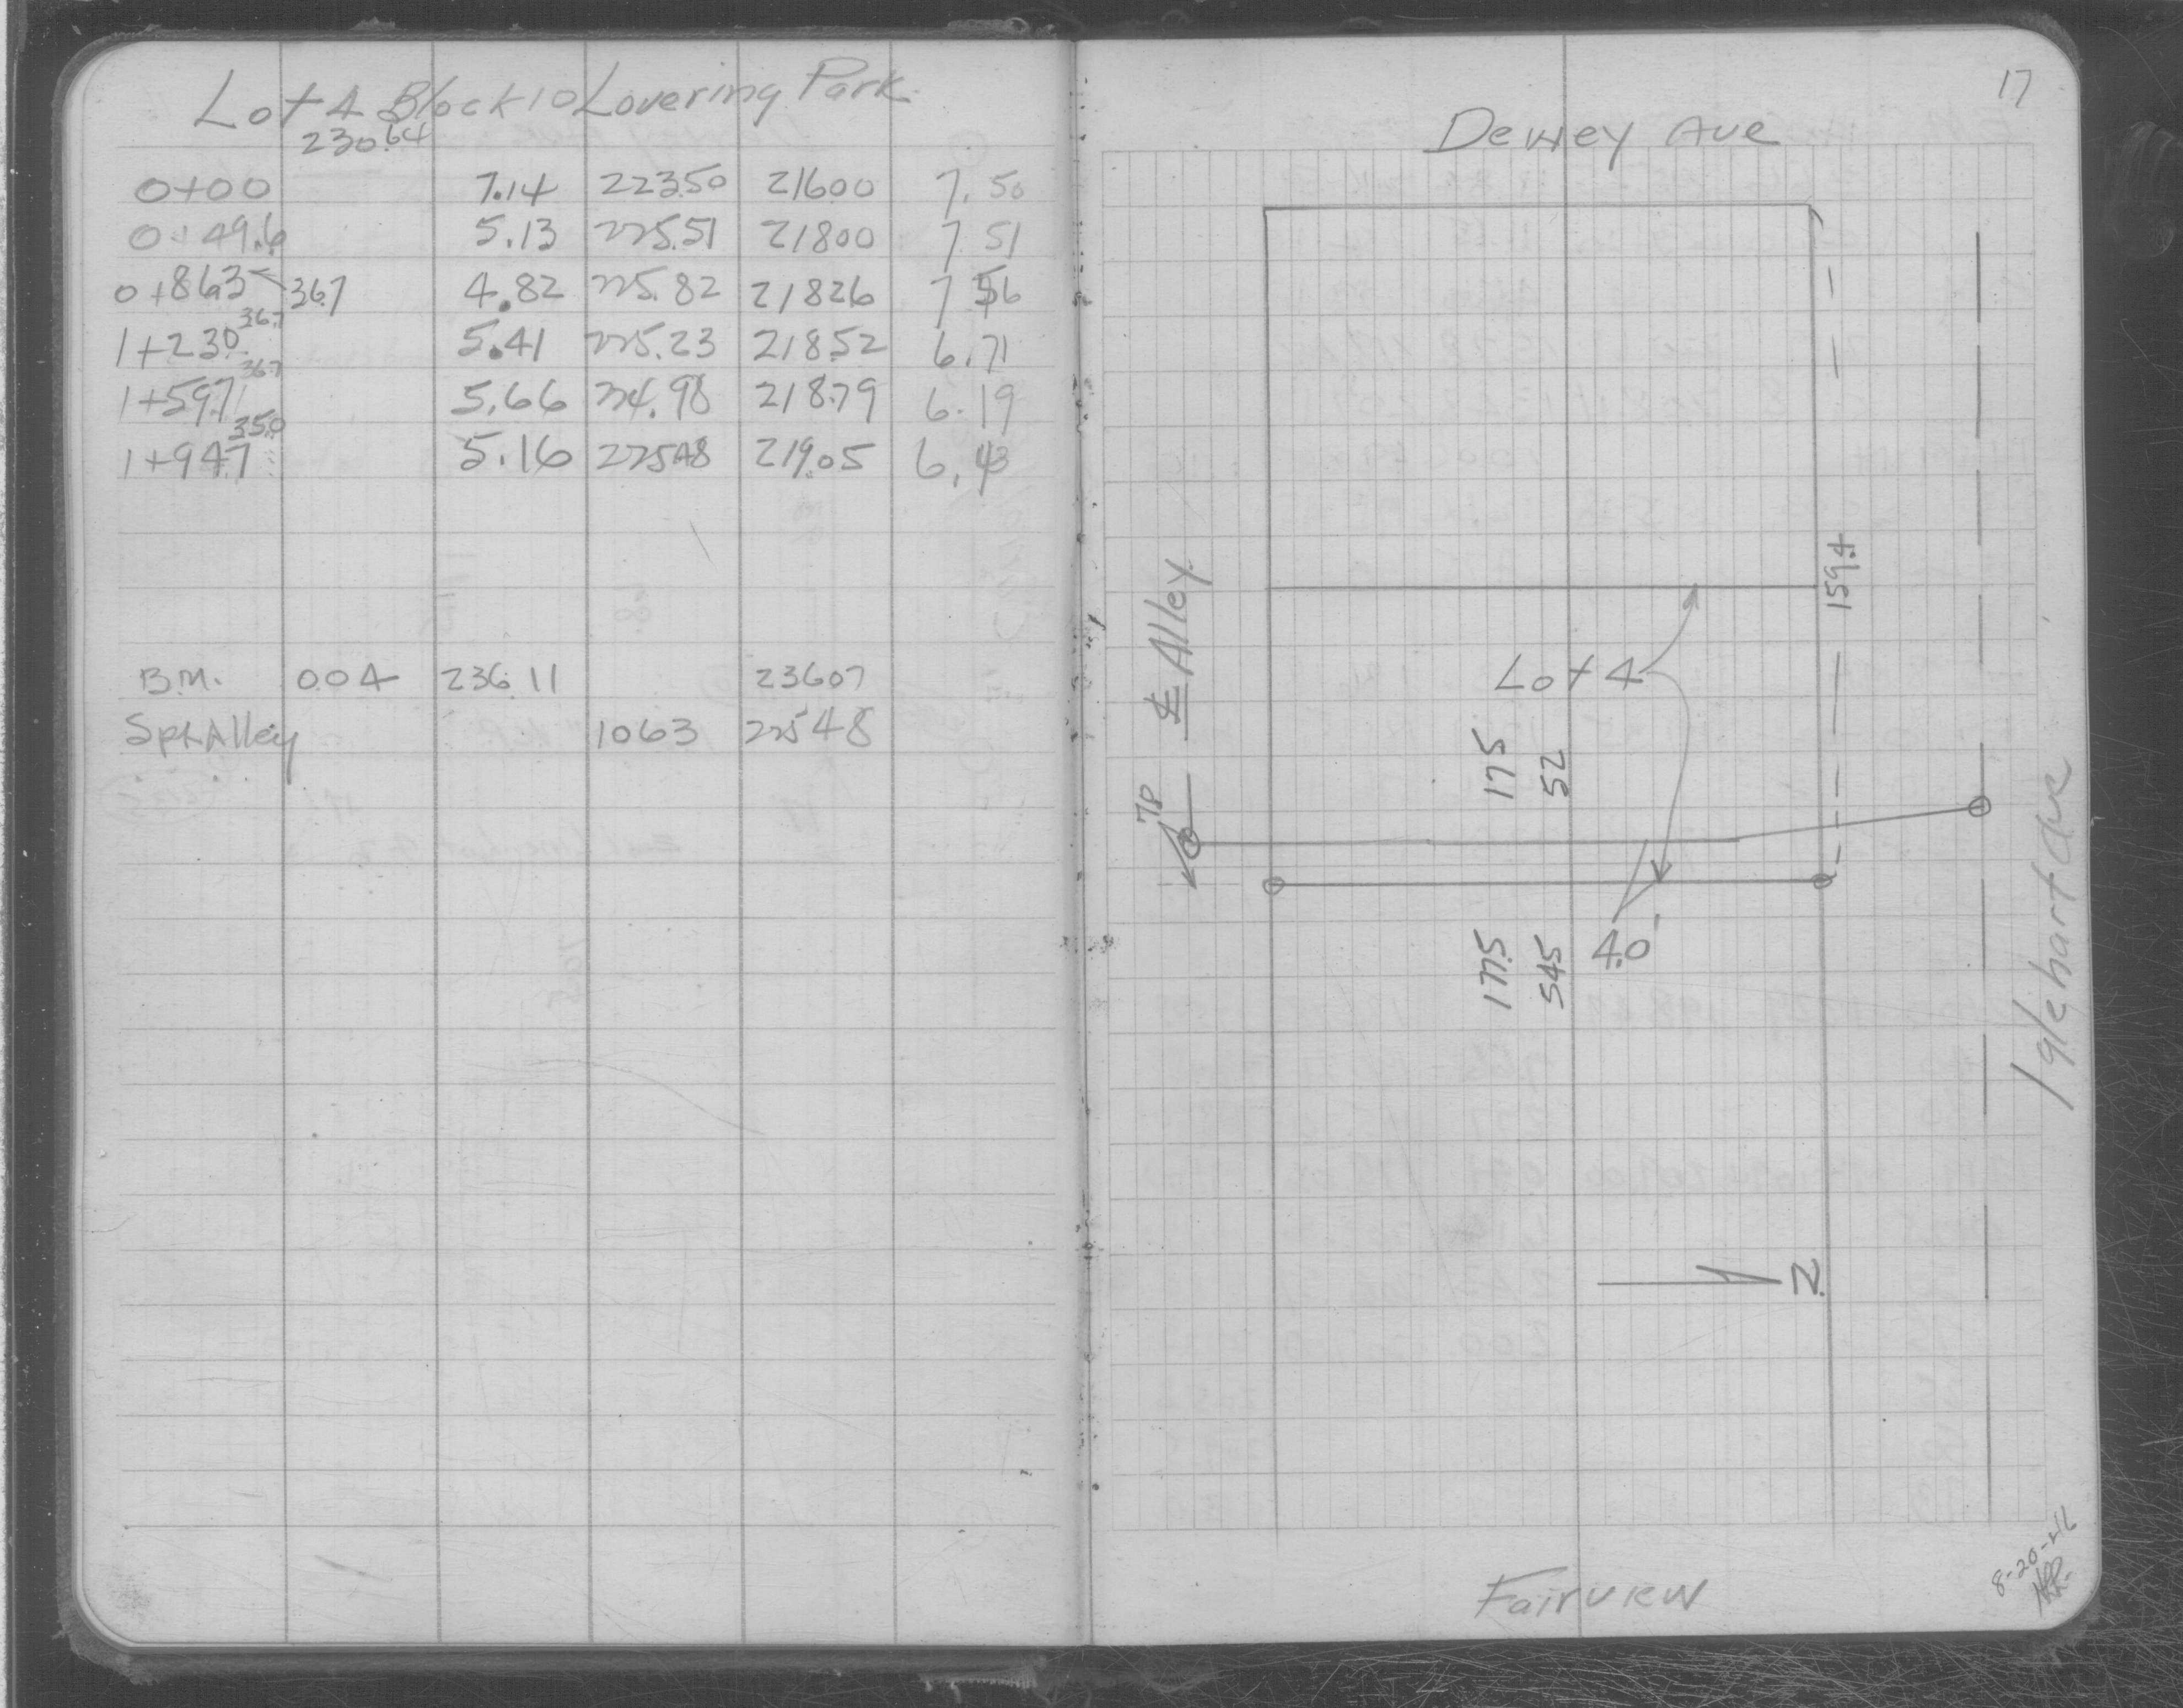 Lot 4 Block 10 Lovering Park
230.64
0+00 7.14 223.50 216.00 7.50
0+49.6 5.13 225.51 218.00 7.51
0+86.3 36.7 4.82 225.82 218.26 7.56
36.7
1+23.0 5.41 225.23 218.52 6.71
36.7
1+59.7 5.66 224.98 218.79 6.19
35.0
1+94.7 5.16 225.48 219.05 6.43
B.M. 0.04 236.11 236.07
Spk Alley 10.63 225.48
17
Dewey Ave
159.4
℄ Alley
Lot 4
175
52
TP
4.0'
177.5
545
Iglehart Ave
N.
Fairview
8-20-46